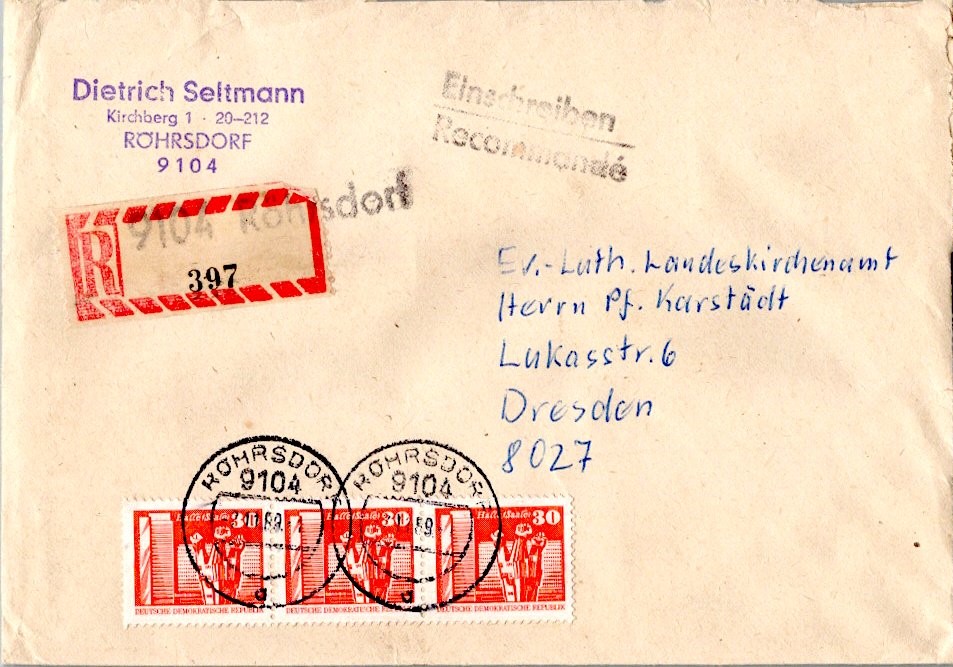 Dietrich Seltmann
Kirchberg 1 · 20-212
RÖHRSDORF
9104
Einschreiben
Recommandé
R
9104 Röhrsdorf
397
Ev.-Luth. Landeskirchenamt
Herrn Pf. Karstädt
Lukasstr. 6
Dresden
8027
RÖHRSDORF
9104
a
RÖHRSDORF
9104
a
Halle/Saale 30
DEUTSCHE DEMOKRATISCHE REPUBLIK
Halle/Saale 30
DEUTSCHE DEMOKRATISCHE REPUBLIK
Halle/Saale 30
DEUTSCHE DEMOKRATISCHE REPUBLIK